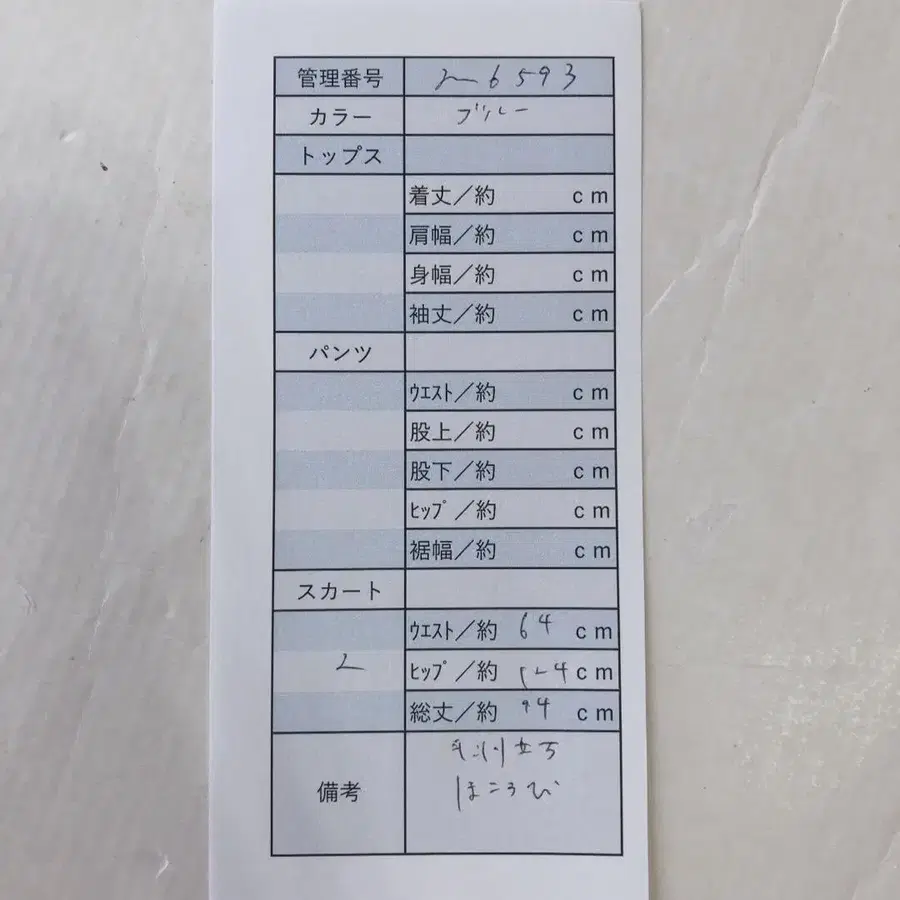 管理番号 26593
カラー ブルー
トップス
着丈／約 cm
肩幅／約 cm
身幅／約 cm
袖丈／約 cm
パンツ
ウエスト／約 cm
股上／約 cm
股下／約 cm
ヒップ／約 cm
裾幅／約 cm
スカート
ウエスト／約 64 cm
ヒップ／約 cm
総丈／約 94 cm
備考
毛羽立ち
ほころび